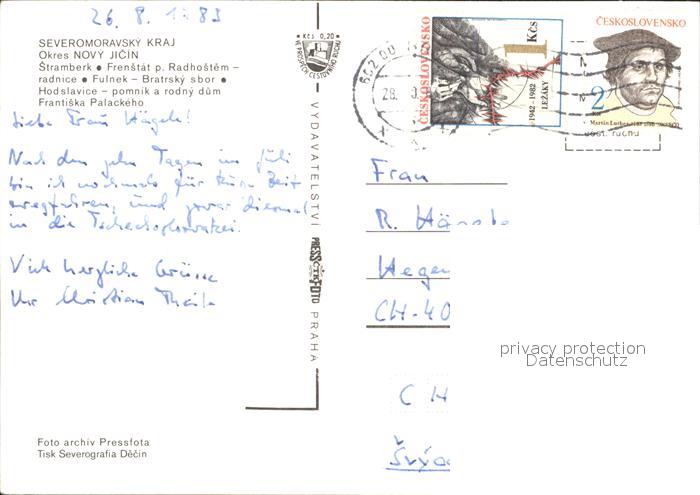 26. 8. 1983
SEVEROMORAVSKÝ KRAJ
Okres NOVÝ JIČÍN
Štramberk ● Frenštát p. Radhoštěm –
radnice ● Fulnek – Bratrský sbor ●
Hodslavice – pomník a rodný dům
Františka Palackého
Kčs 0,20
VE PROSPĚCH CESTOVNÍHO RUCHU
Liebe Frau
Nach den zehn Tagen im Juli
bin ich nochmals für kurze Zeit
weggefahren, und zwar diesmal
in die Tschechoslowakei.
Viele herzliche Grüsse
Ihr Christian
VYDAVATELSTVÍ PRESSFOTO PRAHA
ČESKOSLOVENSKO
1 Kčs
1942 - 1982
LEŽÁKY
ČESKOSLOVENSKO
2
Kčs
Martin Luther
602 00
Frau
R.
CH-40
CH
privacy protection
Datenschutz
Foto archiv Pressfota
Tisk Severografia Děčín